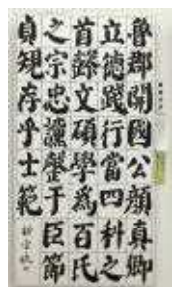 魯郡開國公顏真卿
立德踐行當四科之
首懿文碩學為百氏
之宗忠讜罄于臣節
貞規存乎士範